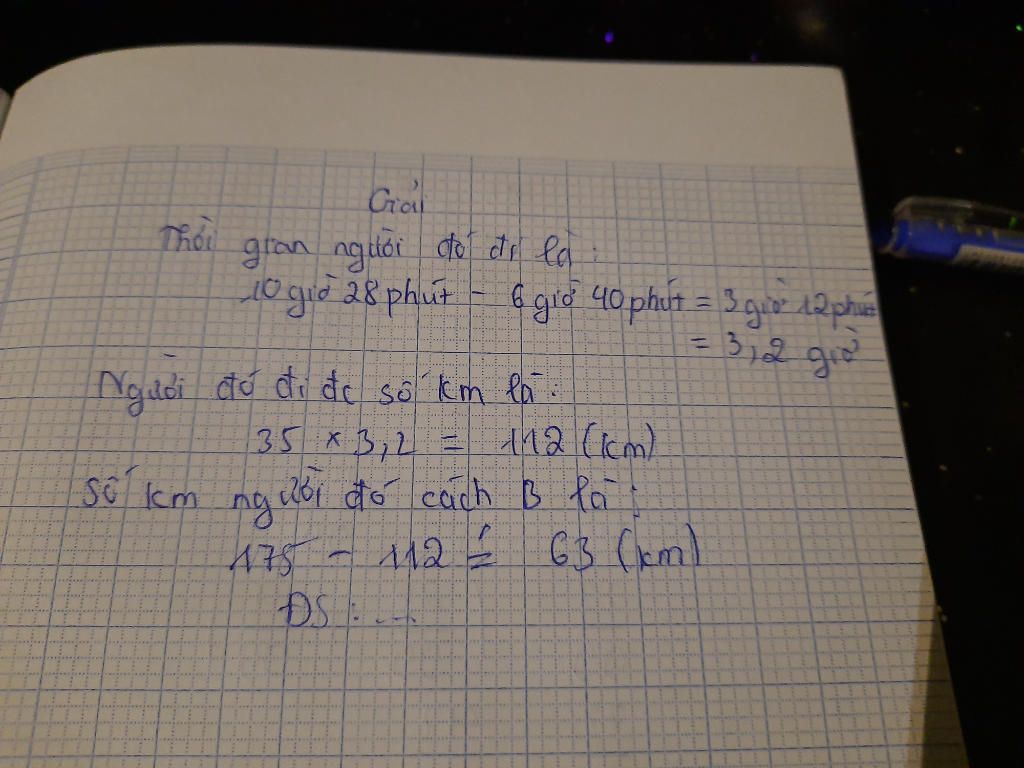 Giải
Thời gian người đó đi là:
10 giờ 28 phút - 6 giờ 40 phút = 3 giờ 12 phút
= 3,2 giờ
Người đó đi đc số km là:
35 x 3,2 = 112 (km)
Số km người đó cách B là:
175 - 112 = 63 (km)
ĐS: ...